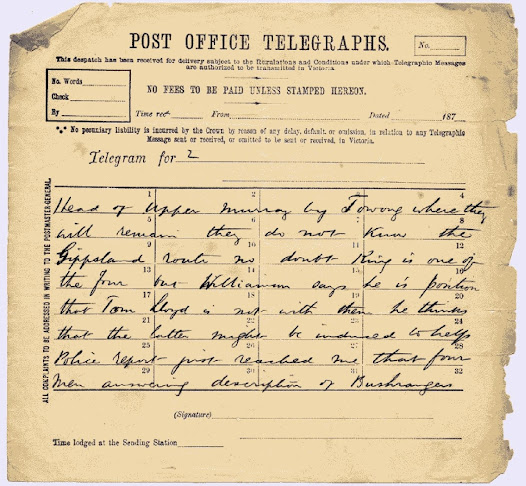 POST OFFICE TELEGRAPHS.
No.
This despatch has been received for delivery subject to the Regulations and Conditions under which Telegraphic Messages
are authorized to be transmitted in Victoria.
No. Words
Check
By
NO FEES TO BE PAID UNLESS STAMPED HEREON.
Time recd. From Dated 187
*** No pecuniary liability is incurred by the Crown by reason of any delay, default, or omission, in relation to any Telegraphic
Message sent or received, or omitted to be sent or received, in Victoria.
Telegram for 2
ALL COMPLAINTS TO BE ADDRESSED IN WRITING TO THE POSTMASTER-GENERAL.
1 2 3 4
Head of Upper Murray by Towong where they
5 6 7 8
will remain they do not know the
9 10 11 12
Gippsland route no doubt King is one of
13 14 15 16
the four but Williamson says he is position
17 18 19 20
that Tom Lloyd is not with them he thinks
21 22 23 24
that the latter might be induced to help
25 26 27 28
Police report just reached me that four
29 30 31 32
Men answering description of Bushrangers
(Signature)
Time lodged at the Sending Station